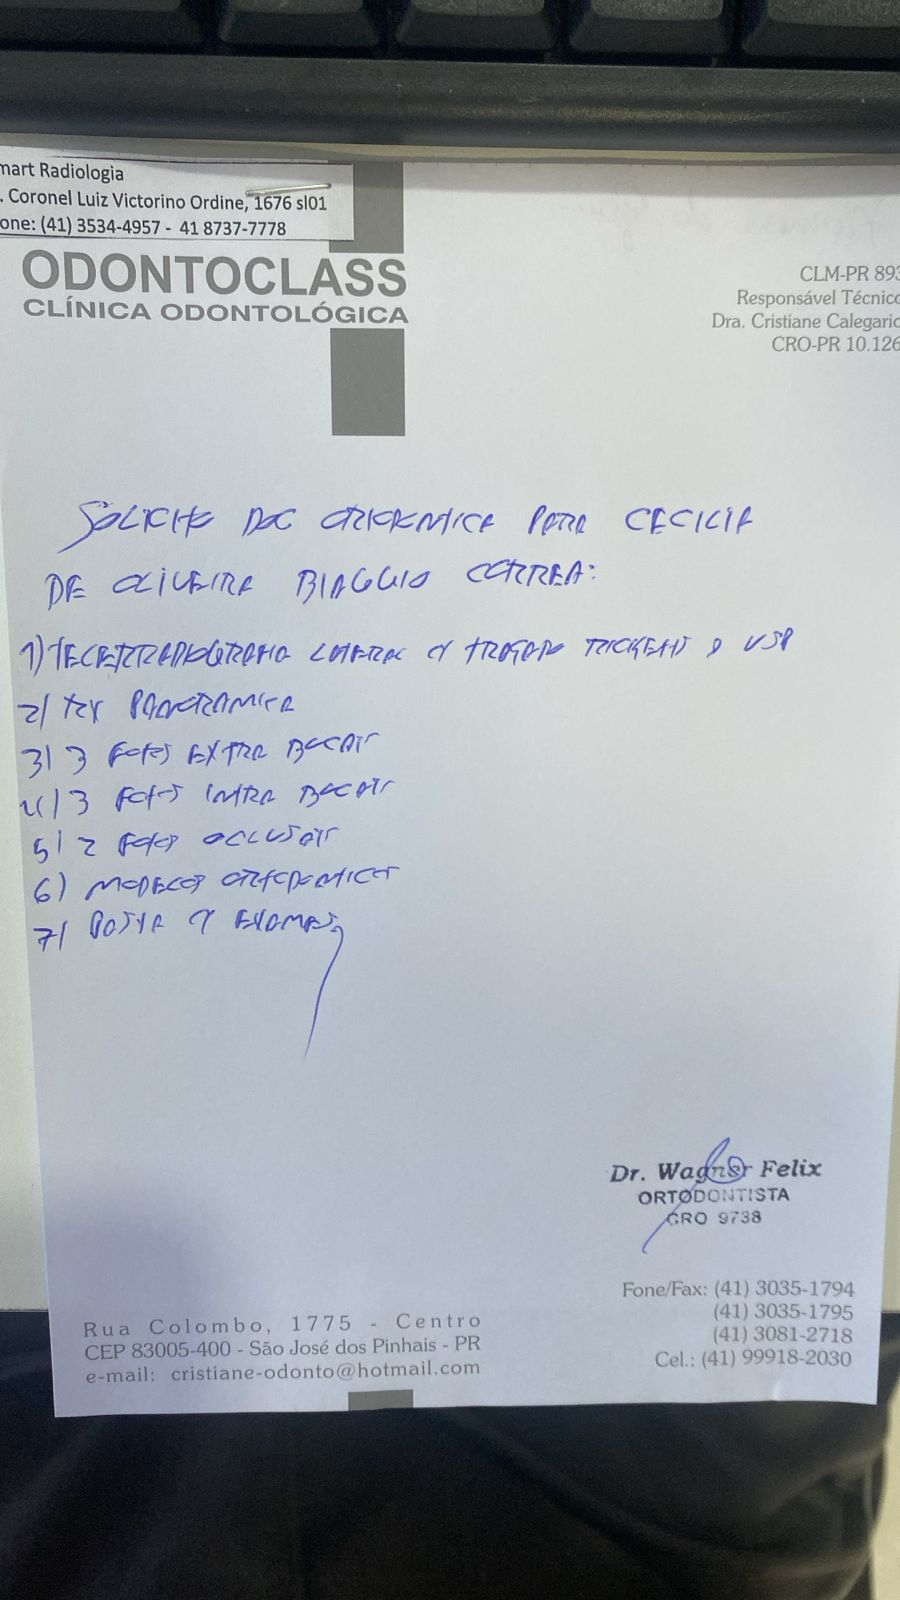 mart Radiologia
. Coronel Luiz Victorino Ordine, 1676 sl01
one: (41) 3534-4957 - 41 8737-7778
ODONTOCLASS
CLÍNICA ODONTOLÓGICA
CLM-PR 893
Responsável Técnico
Dra. Cristiane Calegario
CRO-PR 10.126
SOLICITO DOC ORTODONTICA PARA CECILIA
DE OLIVEIRA BIAGGIO CORREA:
1) TELERRADIOGRAFIA LATERAL C/ TRAÇADO RICKETTS E USP
2) RX PANORAMICA
3) 3 FOTOS EXTRA BUCAIS
4) 3 FOTOS INTRA BUCAIS
5) 2 FOTOS OCLUSAIS
6) MODELOS ORTODONTICOS
7) PASTA C/ EXAMES
Dr. Wagner Felix
ORTODONTISTA
CRO 9738
Fone/Fax: (41) 3035-1794
(41) 3035-1795
(41) 3081-2718
Cel.: (41) 99918-2030
Rua Colombo, 1775 - Centro
CEP 83005-400 - São José dos Pinhais - PR
e-mail: cristiane-odonto@hotmail.com